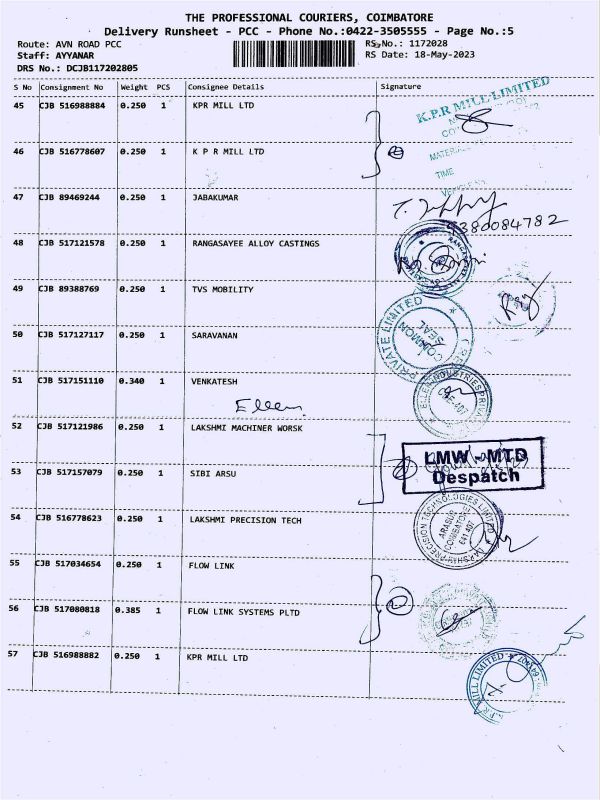 THE PROFESSIONAL COURIERS, COIMBATORE
Delivery Runsheet - PCC - Phone No.:0422-3505555 - Page No.:5
Route: AVN ROAD PCC RS No.: 1172028
Staff: AYYANAR RS Date: 18-May-2023
DRS No.: DCJB117202805
S No Consignment No Weight PCS Consignee Details Signature
45 CJB 516988884 0.250 1 KPR MILL LTD
K.P.R MILL LIMITED
46 CJB 516778607 0.250 1 K P R MILL LTD
TIME
47 CJB 89469244 0.250 1 JABAKUMAR
9380084782
48 CJB 517121578 0.250 1 RANGASAYEE ALLOY CASTINGS
49 CJB 89388769 0.250 1 TVS MOBILITY
PRIVATE LIMITED
COMMON SEAL
50 CJB 517127117 0.250 1 SARAVANAN
51 CJB 517151110 0.340 1 VENKATESH
Ellen
52 CJB 517121986 0.250 1 LAKSHMI MACHINER WORSK
LMW - MTD
Despatch
53 CJB 517157079 0.250 1 SIBI ARSU
54 CJB 516778623 0.250 1 LAKSHMI PRECISION TECH
PRECISION TECHNOLOGIES LIMITED
ARASUR
COIMBATORE
641 407
55 CJB 517034654 0.250 1 FLOW LINK
56 CJB 517080818 0.385 1 FLOW LINK SYSTEMS PLTD
57 CJB 516988882 0.250 1 KPR MILL LTD
K.P.R MILL LIMITED